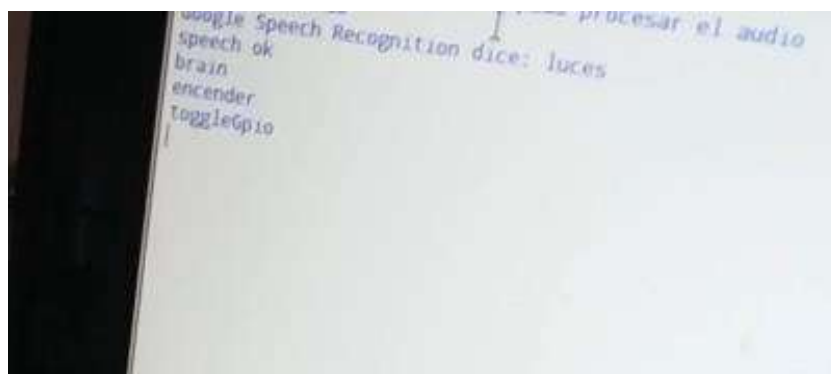 procesar el audio
Google Speech Recognition dice: luces
speech ok
brain
encender
toggleGpio